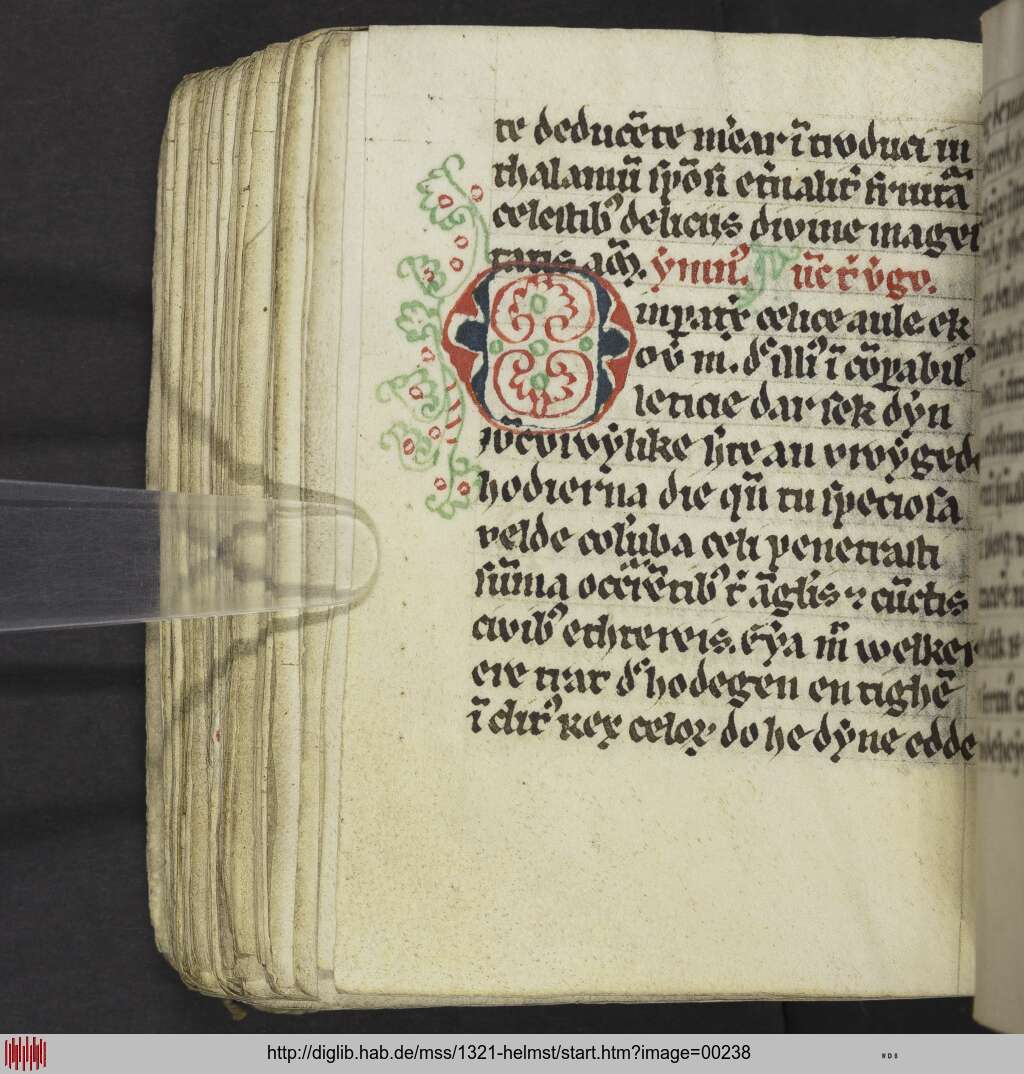 te deducẽte mẽar ĩtroduci in
thalamũ spõsi et̃nalit̾ fruitã
celestib᷒ deliciis divine magei
tatis am̃. ymn᷒.
O inperat̾x celice aule ek
ov̾ m. d᷒ illi᷒ ĩcõparabil᷒
leticie dar sek dẏn
vrowẏlike hr̃te an vrowẏgede
hodierna die qũ tu speciosa
velde colũba celi penetrasti
sũma occr̃rẽtib᷒ t᷒ ãglis ⁊ cũctis
civib᷒ ethtereis. Eẏa m̃ welker
ere trat d᷒ hodegen en tighẽ
ĩ dit᷒ rex celoꝝ do he dẏne edde
http://diglib.hab.de/mss/1321-helmst/start.htm?image=00238